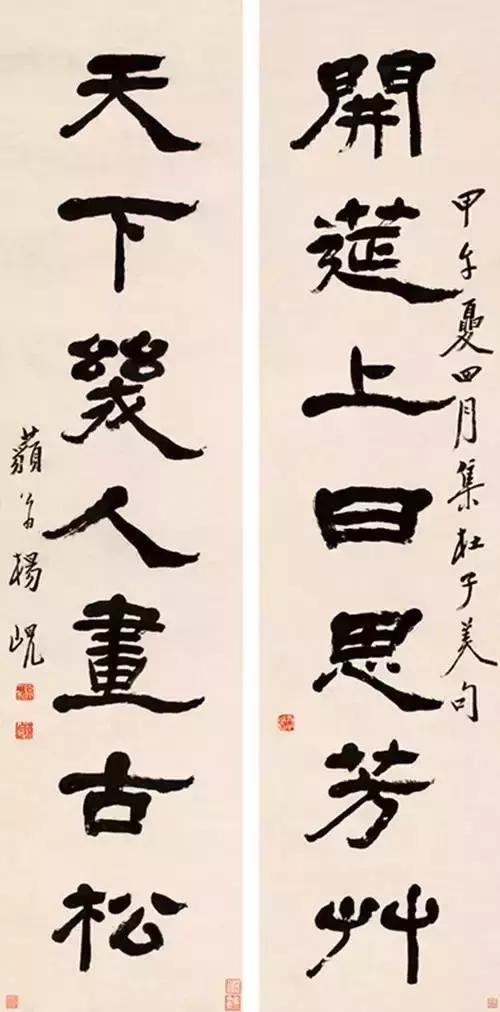 開筵上日思芳艸
甲午夏四月集杜子美句
天下幾人畫古松
藾翁楊峴